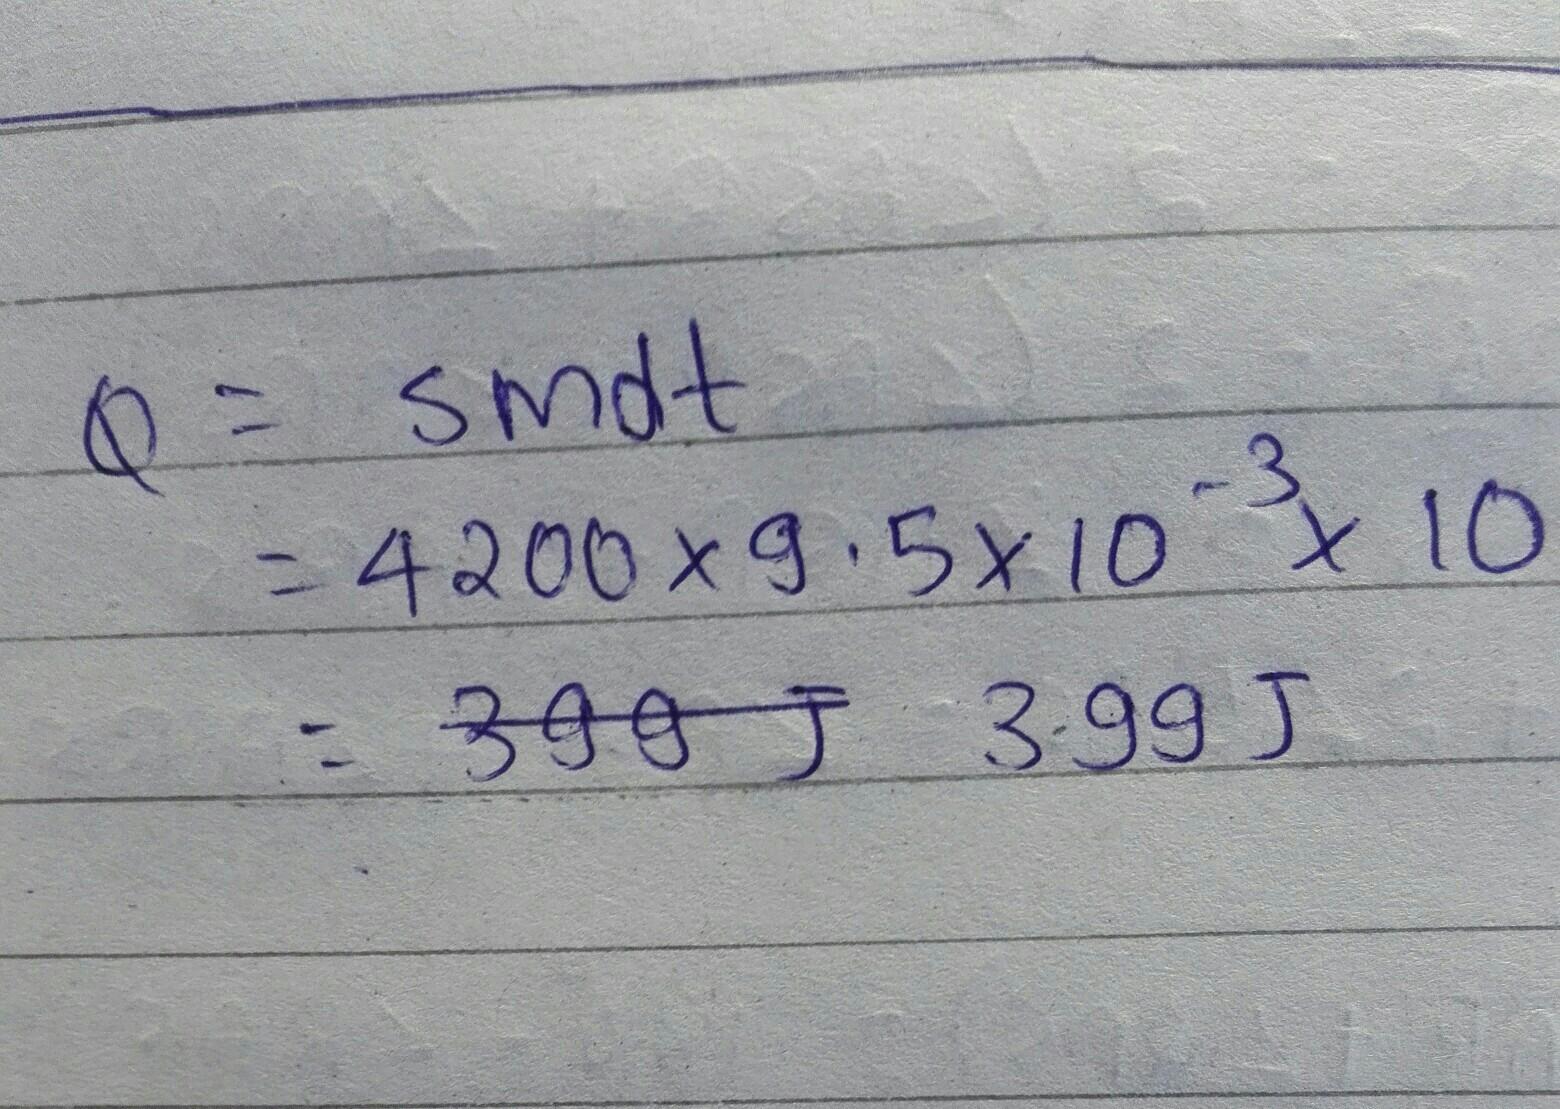 Q = smdt
= 4200 x 9.5 x 10⁻³ x 10
= ~~399 J~~ 3.99 J